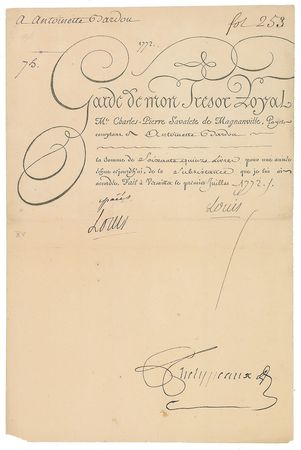 A Antoinette Dardou fol 253
1772.
75.
Garde de mon Tresor Royal
Mᵉ Charles-Pierre Savalete de Magnanville, Payez
comptant A Antoinette Dardou
la somme de Soixante quinze Livres pour une année
échue cejourd'hui, de la Subsistance que je lui ai
accordée. Fait à Versailles le premier Juillet 1772 ./.
Louis
Louis
Phelypeaux